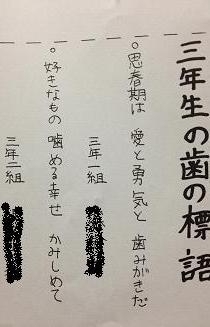 三年生の歯の標語
。思春期は 愛と勇気と 歯みがきだ
三年一組
。好きなもの 噛める幸せ かみしめて
三年二組